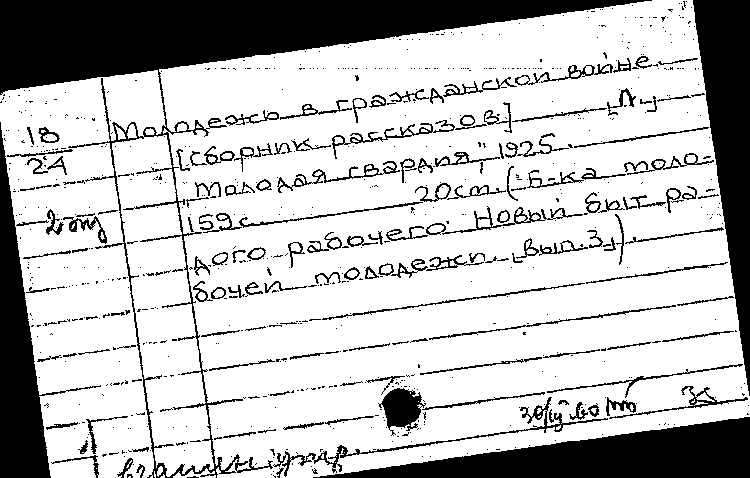 18
24
Молодежь в гражданской войне.
[Сборник рассказов]
Л.,
"Молодая гвардия," 1925.
159с. 20см. (Б-ка моло-
дого рабочего. Новый быт ра-
бочей молодежи. Вып.3).